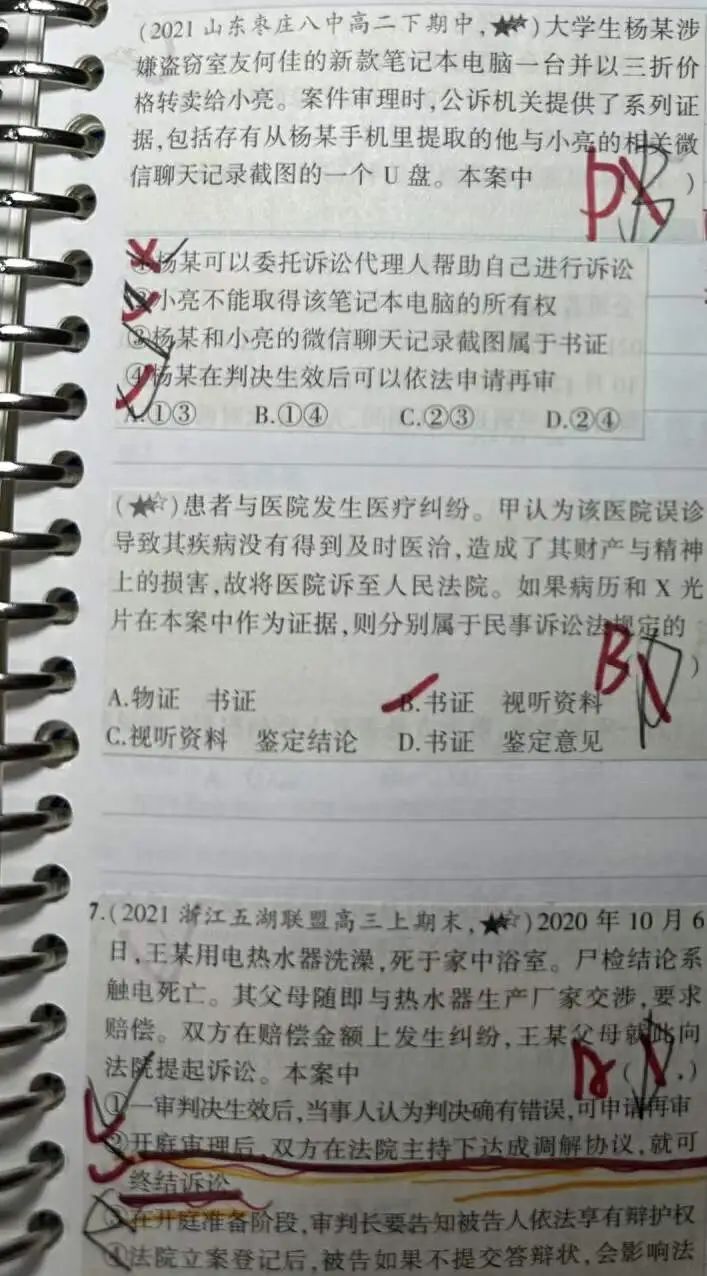 (2021 山东枣庄八中高二下期中,★★)大学生杨某涉
嫌盗窃室友何佳的新款笔记本电脑一台并以三折价
格转卖给小亮。案件审理时,公诉机关提供了系列证
据,包括存有从杨某手机里提取的他与小亮的相关微
信聊天记录截图的一个 U 盘。本案中 ( )
D B
①杨某可以委托诉讼代理人帮助自己进行诉讼
②小亮不能取得该笔记本电脑的所有权
③杨某和小亮的微信聊天记录截图属于书证
④杨某在判决生效后可以依法申请再审
A.①③ B.①④ C.②③ D.②④
(★☆)患者与医院发生医疗纠纷。甲认为该医院误诊
导致其疾病没有得到及时医治,造成了其财产与精神
上的损害,故将医院诉至人民法院。如果病历和 X 光
片在本案中作为证据,则分别属于民事诉讼法规定的
B D )
A.物证 书证 B.书证 视听资料
C.视听资料 鉴定结论 D.书证 鉴定意见
7.(2021 浙江五湖联盟高三上期末,★☆)2020 年 10 月 6
日,王某用电热水器洗澡,死于家中浴室。尸检结论系
触电死亡。其父母随即与热水器生产厂家交涉,要求
赔偿。双方在赔偿金额上发生纠纷,王某父母就此向
法院提起诉讼。本案中 A ( )
①一审判决生效后,当事人认为判决确有错误,可申请再审
②开庭审理后,双方在法院主持下达成调解协议,就可
终结诉讼
③在开庭准备阶段,审判长要告知被告人依法享有辩护权
④法院立案登记后,被告如果不提交答辩状,会影响法